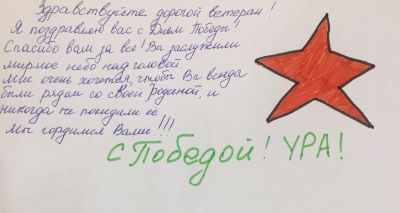 Здравствуйте дорогой ветеран!
Я поздравляю вас с Днём Победы!
Спасибо вам за всё! Вы заслужили
мирное небо над головой
Мне очень хотется, чтобы Вы всегда
были рядом со своей Родиной, и
никогда не покидали её
Мы гордимся Вами!!!
С Победой! УРА!